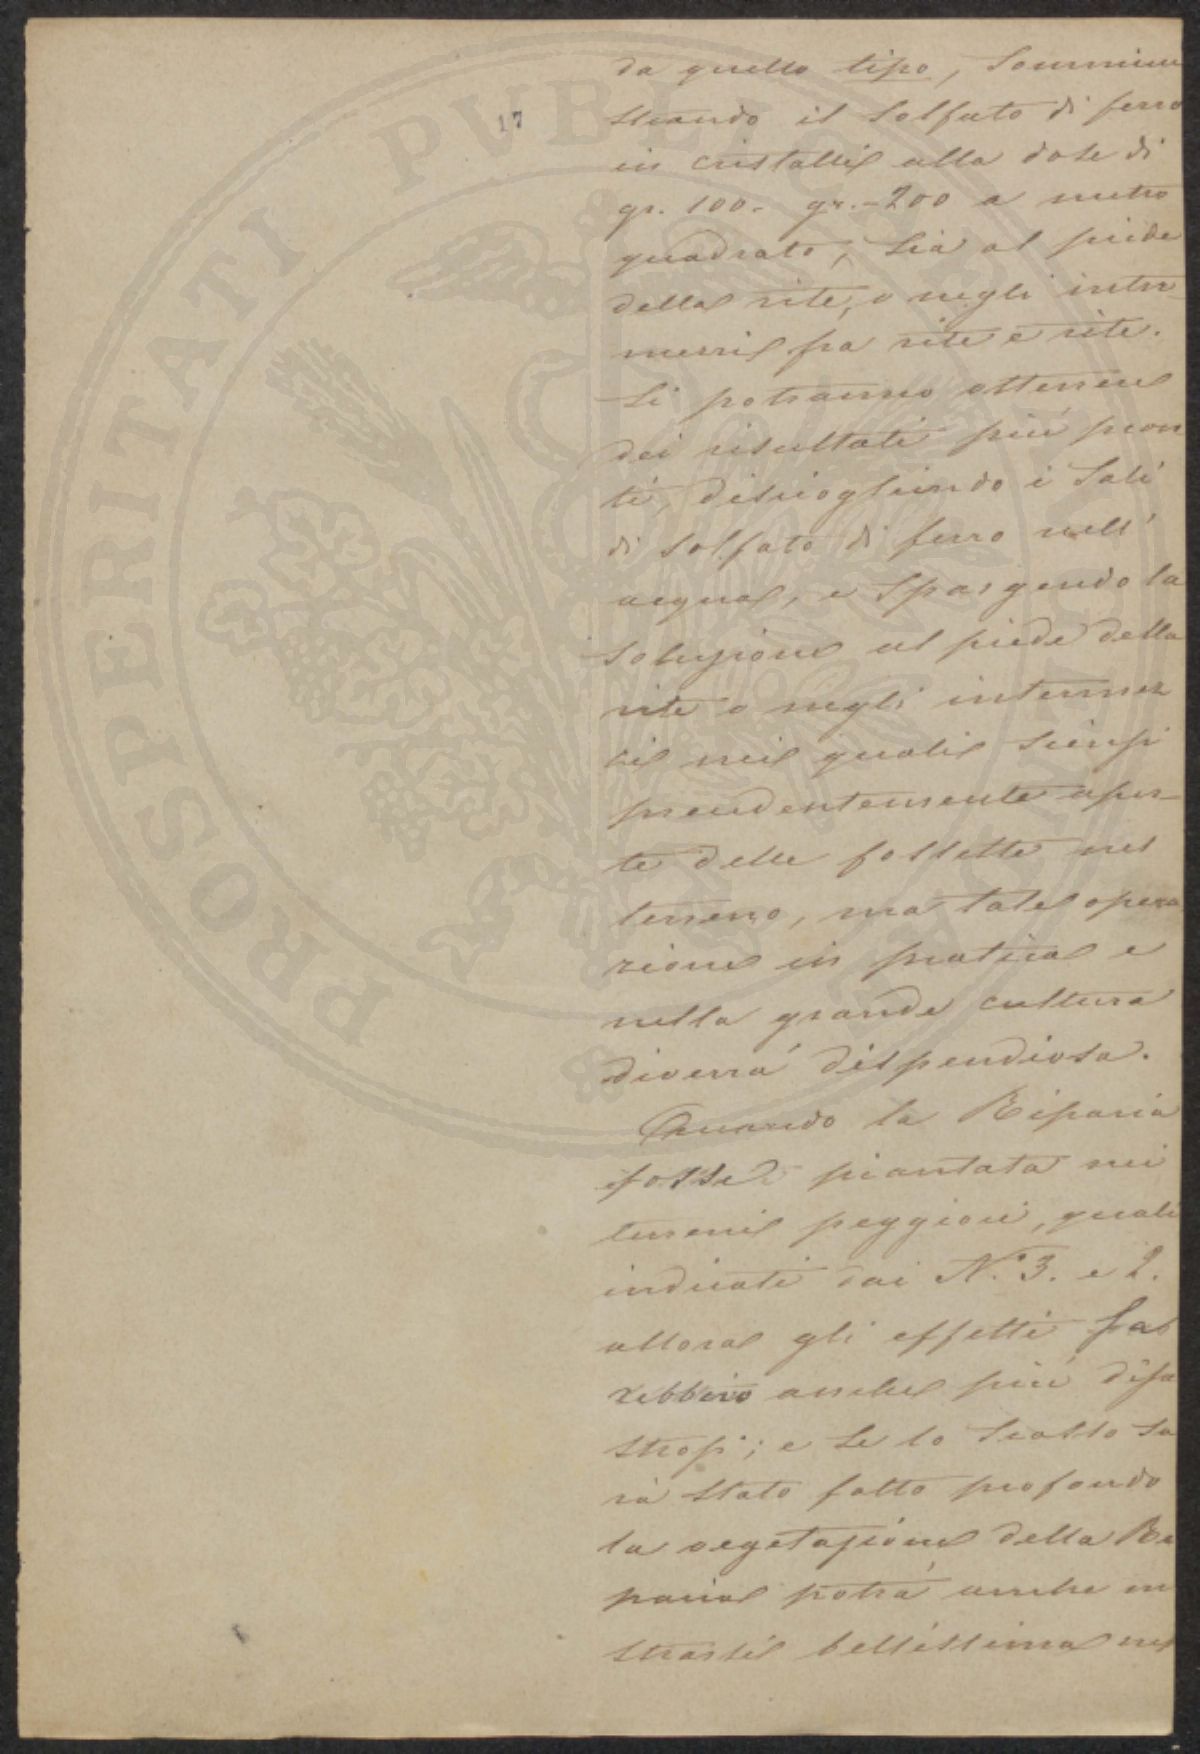 17
da quello tipo, sommini
strando il solfato di ferro
in cristalli alla dose di
gr. 100 - gr. - 200 a metro
quadrato, sia al piede
della vite, o negli inter-
mezzi fra vite e vite.
Si potranno ottenere
dei risultati più pron
ti, disciogliendo i sali
di solfato di ferro nell'
acqua, e spargendo la
soluzione al piede della
vite o negli intermez
zi nei quali siensi
precedentemente aper-
te delle fossette nel
terreno, ma tale opera
zione in pratica e
nella grande cultura
diverrà dispendiosa.
Quando la Riparia
fosse piantata nei
terreni peggiori, quali
indicati dai N.° 3. e 2.
allora gli effetti sa
rebbero anche più disa
strosi; e se lo scasso sa
rà stato fatto profondo
la vegetazione della Ri
paria potrà anche mo
strarsi bellissima nel
PROSPERITATI PVBLICAE